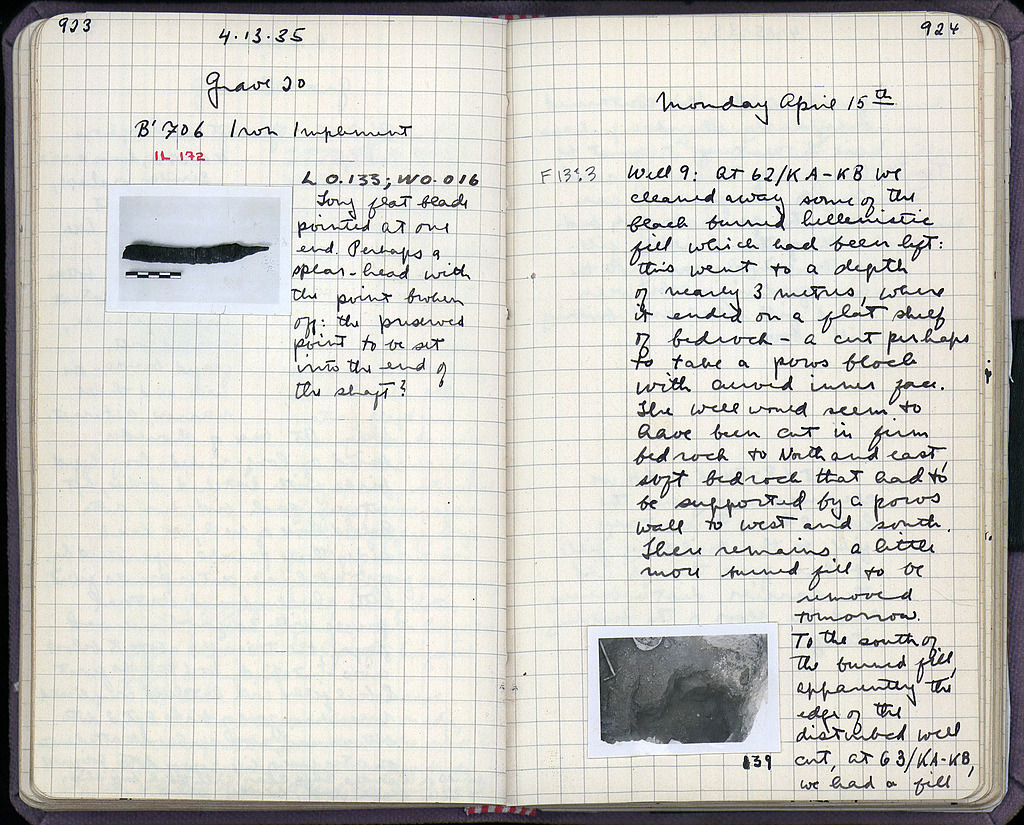 923
4·13·35
Grave 20
B' 706 Iron Implement
IL 172
L 0.133; W 0.016
Long flat blade
pointed at one
end. Perhaps a
spear-head with
the point broken
off: the preserved
point to be set
into the end of
the shaft?
924
Monday April 15th
Well 9: At 62/KA-KB we
cleaned away some of the
black burned hellenistic
fill which had been left:
this went to a depth
of nearly 3 metres, where
it ended on a flat shelf
of bedrock - a cut perhaps
to take a poros block
with curved inner face.
The well would seem to
have been cut in firm
bedrock to North and east,
soft bedrock that had to
be supported by a poros
wall to west and south.
There remains a little
more burned fill to be
removed
tomorrow.
To the south of
the burned fill,
apparently the
edge of the
disturbed well
cut, at 63/KA-KB,
we had a fill
139